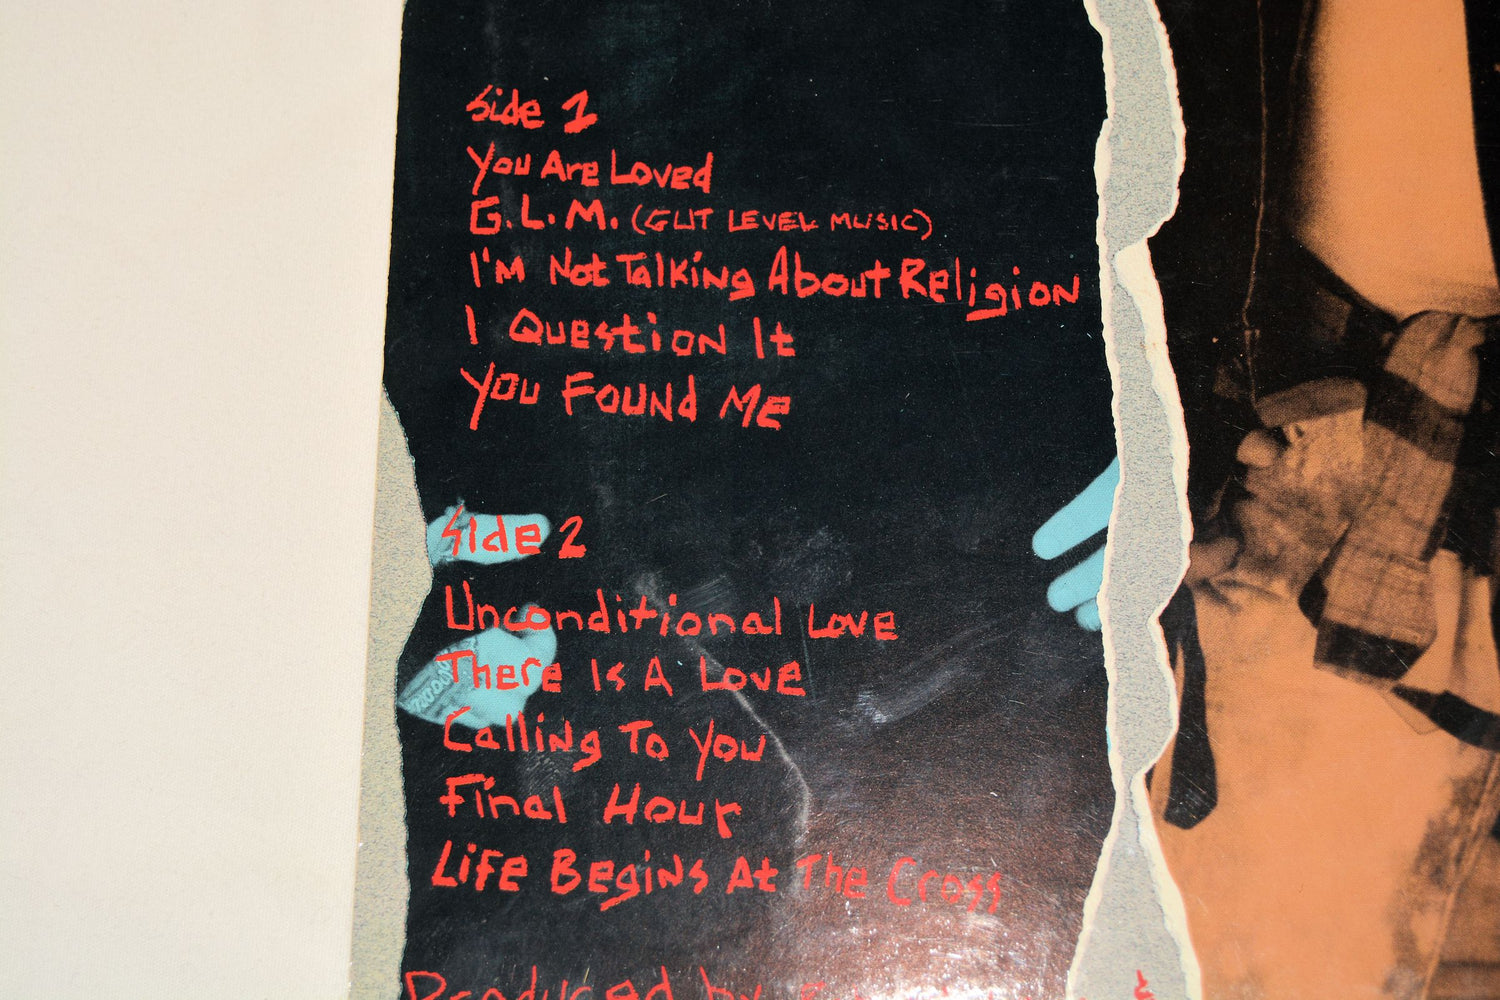 Side 1
You Are Loved
G.L.M. (GUT LEVEL MUSIC)
I'm Not Talking About Religion
I Question It
You Found Me
Side 2
Unconditional Love
There Is A Love
Calling To You
Final Hour
Life Begins At The Cross
Produced by